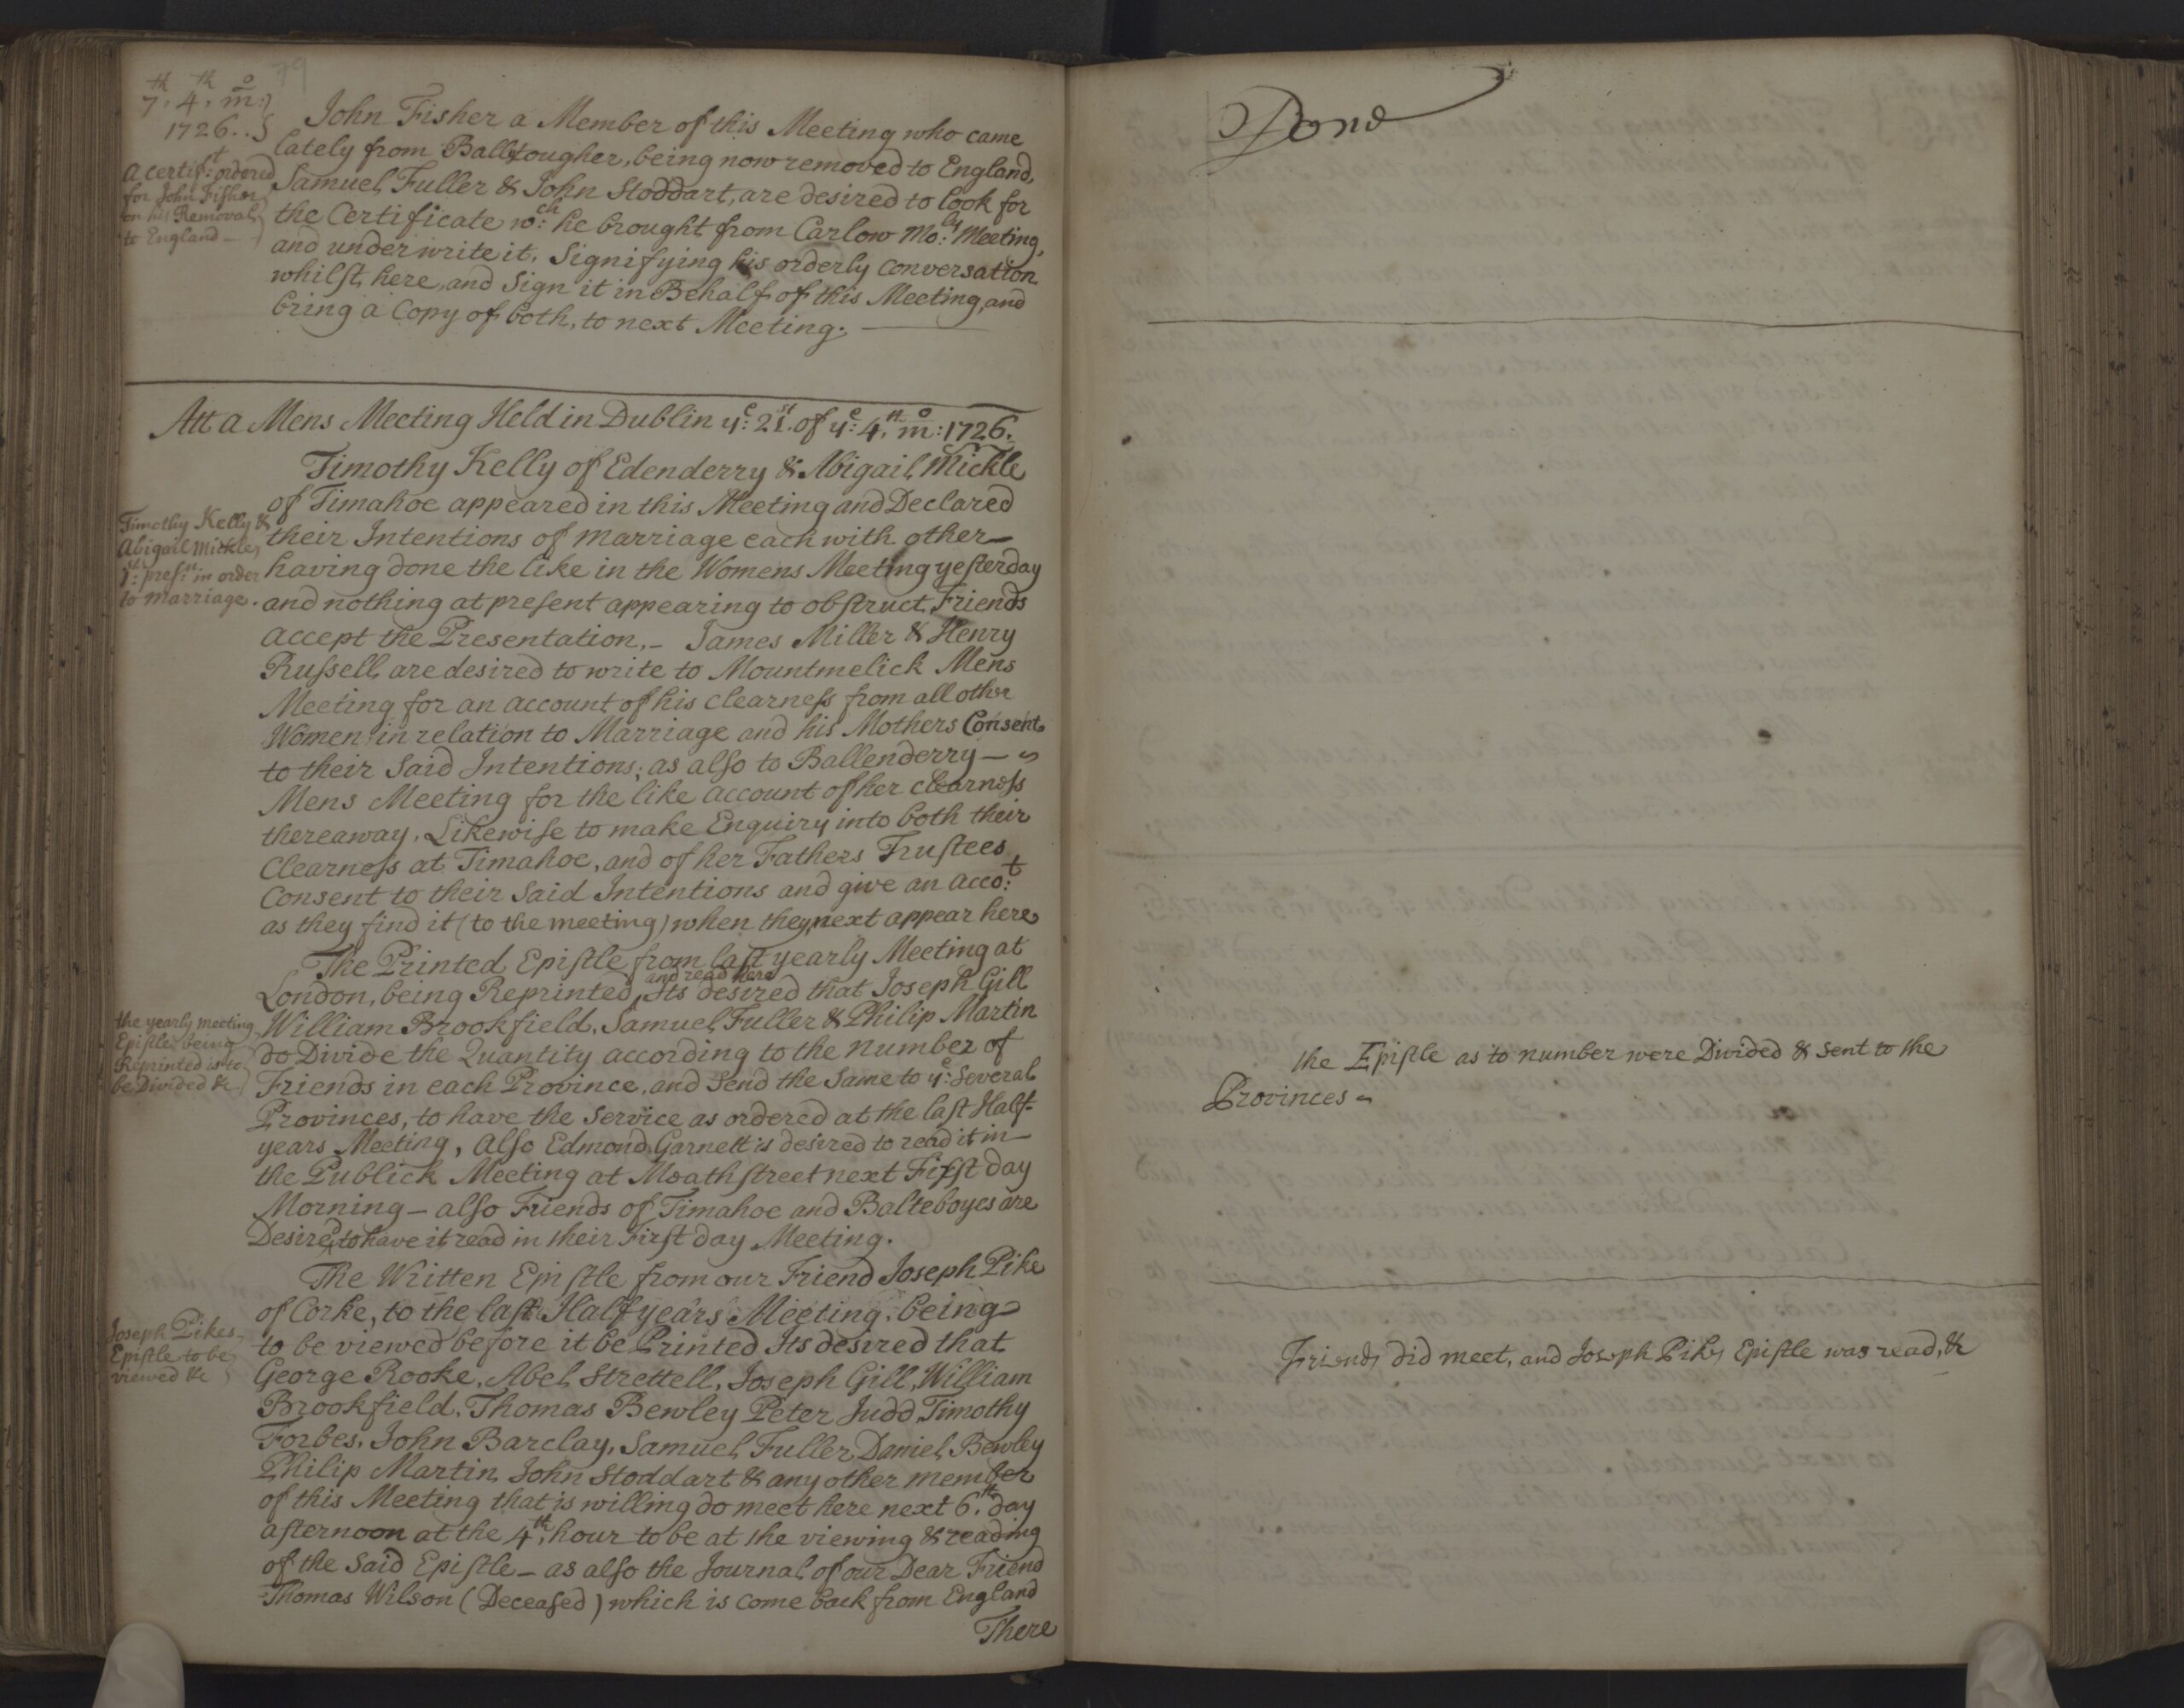 79
7th. 4th. mo:
1726..
John Fisher a Member of this Meeting who came
lately from Ballitougher, being now removed to England,
Samuel Fuller & John Stoddart, are desired to look for
the Certificate wch: he brought from Carlow Mo:ly Meeting,
and underwrite it, Signifying his orderly Conversation
whilst here, and Sign it in Behalf of this Meeting, and
bring a Copy of both, to next Meeting.
a certift: ordered
for John Fisher
on his Removal
to England
Att a Mens Meeting Held in Dublin ye: 21st. of ye: 4th. mo: 1726.
Timothy Kelly of Edenderry & Abigail Mickle
of Timahoe appeared in this Meeting and Declared
their Intentions of Marriage each with other
having done the like in the Womens Meeting yesterday
and nothing at present appearing to obstruct, Friends
accept the Presentation,- James Miller & Henry
Russell, are desired to write to Mountmelick Mens
Meeting for an account of his clearness from all other
Women in relation to Marriage and his Mothers Consent
to their Said Intentions; as also to Ballenderry
Mens Meeting for the like account of her clearness
thereaway. Likewise to make Enquiry into both their
Clearness at Timahoe, and of her Fathers Trustees
Consent to their Said Intentions and give an acco:t
as they find it (to the meeting) when they next appear here
Timothy Kelly &
Abigail Mickle,
1st: prest: in order
to marriage.
The Printed Epistle from last yearly Meeting at
London, being Reprinted, and read here Its desired that Joseph Gill
William Brookfield, Samuel Fuller & Philip Martin
do Divide the Quantity according to the number of
Friends in each Province, and Send the Same to ye: Several
Provinces, to have the Service as ordered at the last Half-
years Meeting, Also Edmond Garnett is desired to read it in
the Publick Meeting at Meath street next First day
Morning - also Friends of Timahoe and Balteboyes are
Desired to have it read in their First day Meeting.
the yearly meeting
Epistle being
Reprinted is to
be Divided &c
The Written Epistle from our Friend Joseph Pike
of Corke, to the last Half years Meeting, being
to be viewed before it be Printed Its desired that
George Rooke, Abel Strettell, Joseph Gill, William
Brookfield, Thomas Bewley Peter Judd, Timothy
Forbes, John Barclay, Samuel Fuller, Daniel Bewley
Philip Martin, John Stoddart & any other member
of this Meeting that is willing do meet here next 6th. day
afternoon at the 4th. hour to be at the viewing & reading
of the Said Epistle - as also the Journal of our Dear Friend
Thomas Wilson (Deceased) which is come back from England
There
Joseph Pikes
Epistle to be
viewed &c
Done
the Epistle as to number were Divided & sent to the
Provinces
Friends did meet, and Joseph Pikes Epistle was read, &c